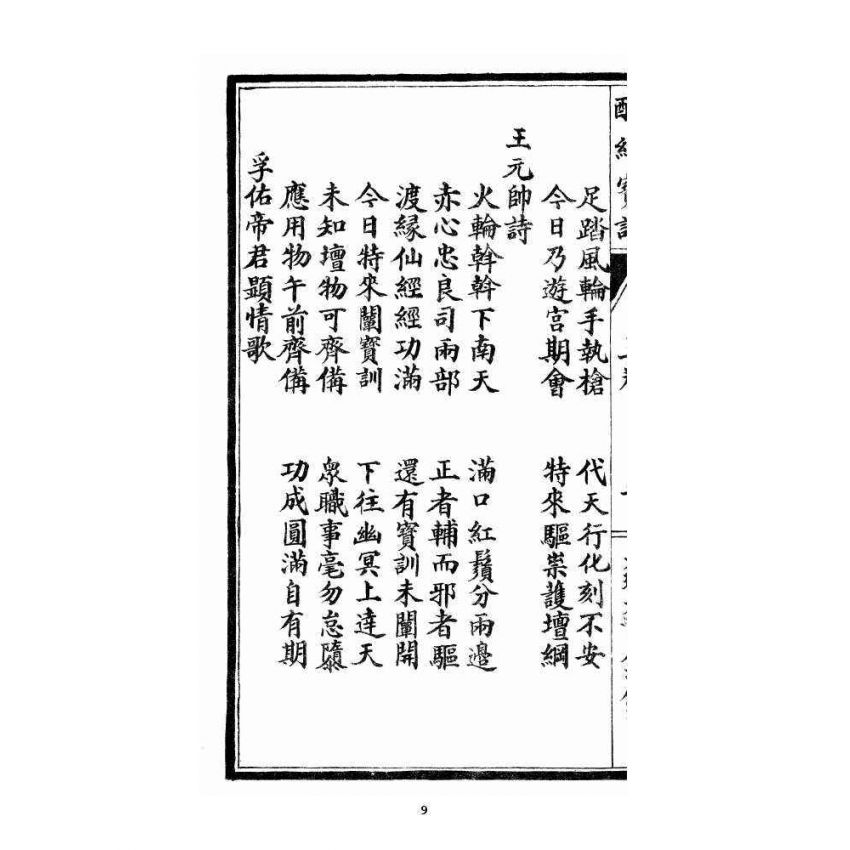 足踏風輪手執槍　代天行化刻不安
今日乃遊宫期會　特來驅祟護壇綱
王元帥詩
火輪斡斡下南天　滿口紅鬚分兩邊
赤心忠良司兩部　正者輔而邪者驅
渡緣仙經經功滿　還有寳訓未闡開
今日特來闡寳訓　下往幽冥上達天
未知壇物可齊備　眾職事毫勿怠隳
應用物午前齊備　功成圓滿自有期
孚佑帝君顯情歌
9